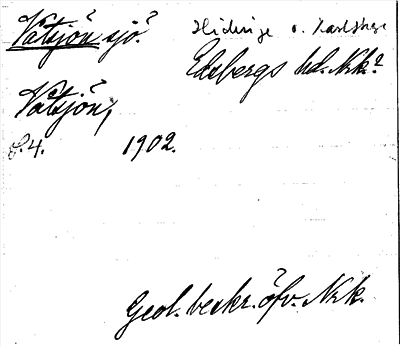 Vätsjön sjö. Hidinge o. Karlskoga
Edsbergs hd. Nrk.?
Vätsjön,
s. 4. 1902.
Geol. beskr. öfv. Nrk.